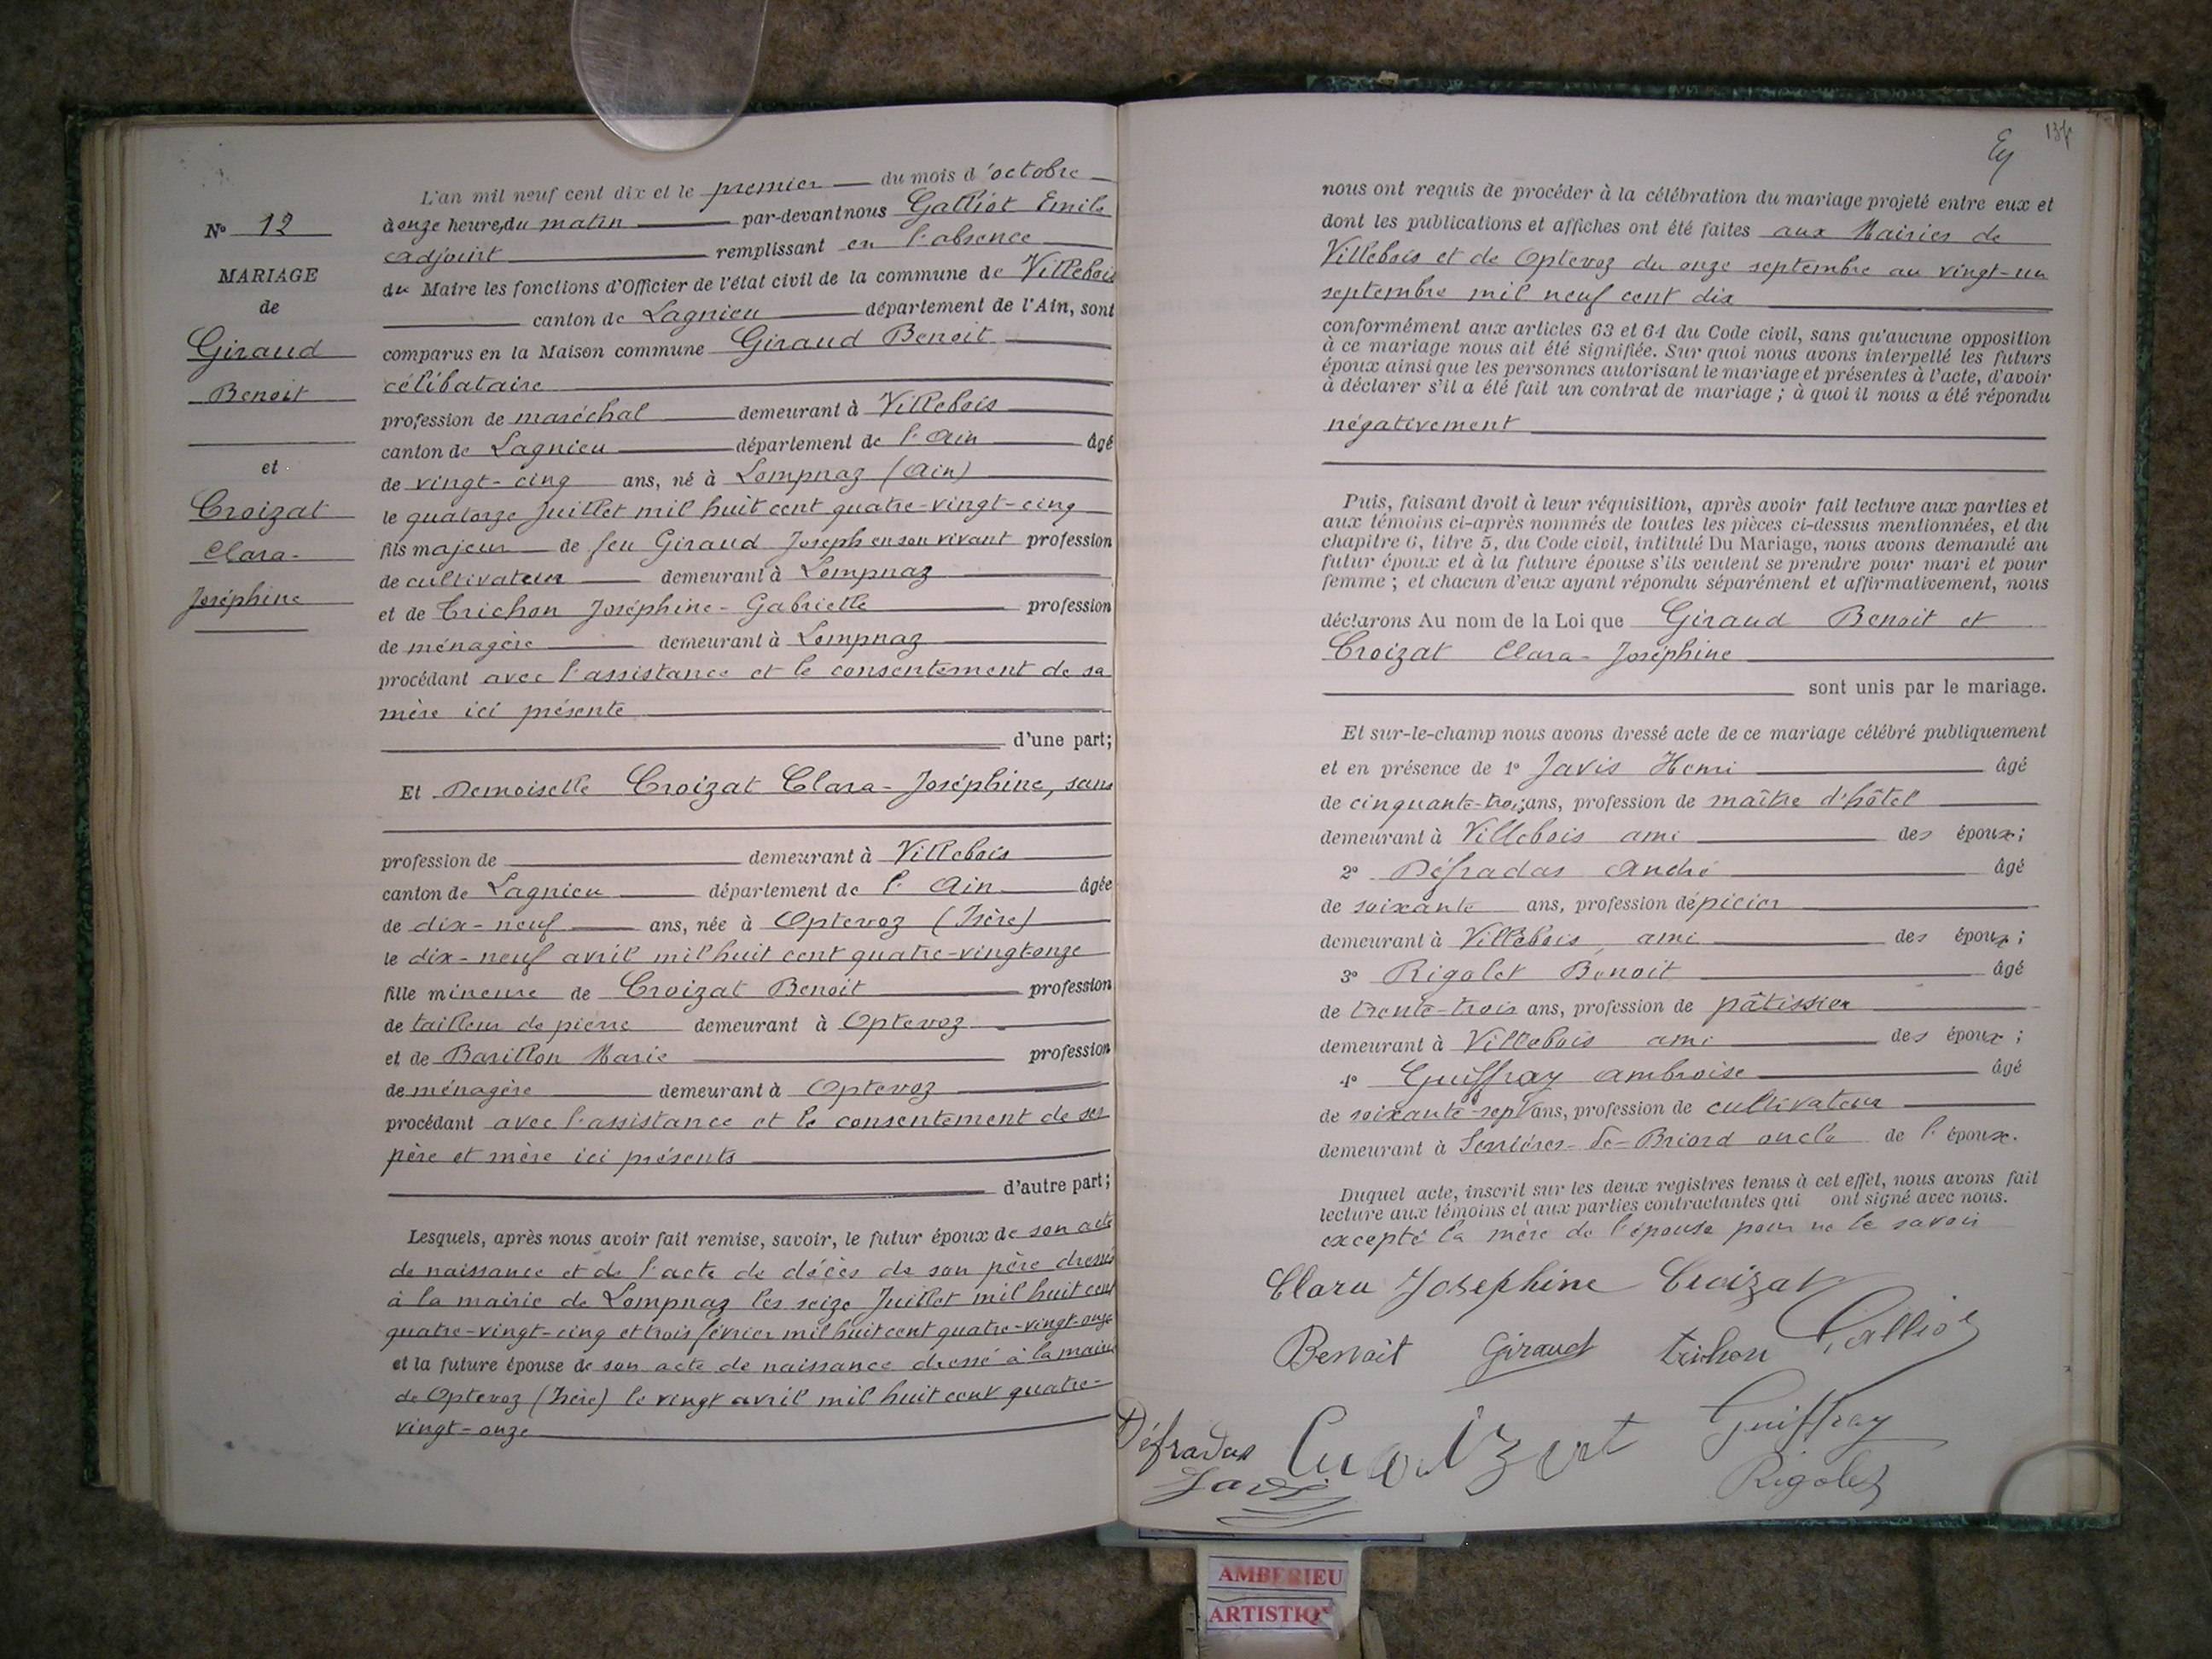 N° 12
MARIAGE
de
Giraud
Benoit
et
Croizat
Clara-
Joséphine
L'an mil neuf cent dix et le premier du mois d'octobre
à onze heures du matin par-devant nous Galliot Emile
adjoint remplissant en l'absence
du Maire les fonctions d'Officier de l'état civil de la commune de Villebois
canton de Lagnieu département de l'Ain, sont
comparus en la Maison commune Giraud Benoit
célibataire
profession de maréchal demeurant à Villebois
canton de Lagnieu département de l'Ain âgé
de vingt-cinq ans, né à Lompnaz (Ain)
le quatorze Juillet mil huit cent quatre-vingt-cinq
fils majeur de feu Giraud Joseph en son vivant profession
de cultivateur demeurant à Lompnaz
et de Trichon Joséphine-Gabrielle profession
de ménagère demeurant à Lompnaz
procédant avec l'assistance et le consentement de sa
mère ici présente
d'une part;
Et Demoiselle Croizat Clara-Joséphine, sans
profession de demeurant à Villebois
canton de Lagnieu département de l'Ain âgée
de dix-neuf ans, née à Optevoz (Isère)
le dix-neuf avril mil huit cent quatre-vingt-onze
fille mineure de Croizat Benoit profession
de tailleur de pierre demeurant à Optevoz
et de Barillon Marie profession
de ménagère demeurant à Optevoz
procédant avec l'assistance et le consentement de ses
père et mère ici présents
d'autre part;
Lesquels, après nous avoir fait remise, savoir, le futur époux de son acte
de naissance et de l'acte de décès de son père dressés
à la mairie de Lompnaz les seize Juillet mil huit cent
quatre-vingt-cinq et trois février mil huit cent quatre-vingt-onze
et la future épouse de son acte de naissance dressé à la mairie
de Optevoz (Isère) le vingt avril mil huit cent quatre-
vingt-onze
nous ont requis de procéder à la célébration du mariage projeté entre eux et
dont les publications et affiches ont été faites aux Mairies de
Villebois et de Optevoz du onze septembre au vingt-un
septembre mil neuf cent dix
conformément aux articles 63 et 64 du Code civil, sans qu'aucune opposition
à ce mariage nous ait été signifiée. Sur quoi nous avons interpellé les futurs
époux ainsi que les personnes autorisant le mariage et présentes à l'acte, d'avoir
à déclarer s'il a été fait un contrat de mariage ; à quoi il nous a été répondu
négativement
Puis, faisant droit à leur réquisition, après avoir fait lecture aux parties et
aux témoins ci-après nommés de toutes les pièces ci-dessus mentionnées, et du
chapitre 6, titre 5, du Code civil, intitulé Du Mariage, nous avons demandé au
futur époux et à la future épouse s'ils veulent se prendre pour mari et pour
femme ; et chacun d'eux ayant répondu séparément et affirmativement, nous
déclarons Au nom de la Loi que Giraud Benoit et
Croizat Clara-Joséphine
sont unis par le mariage.
Et sur-le-champ nous avons dressé acte de ce mariage célébré publiquement
et en présence de 1° Javis Henri âgé
de cinquante-trois ans, profession de maître d'hôtel
demeurant à Villebois ami des époux ;
2° Défradas André âgé
de soixante ans, profession d'épicier
demeurant à Villebois ami des époux ;
3° Rigolet Benoit âgé
de trente-trois ans, profession de pâtissier
demeurant à Villebois ami des époux ;
4° Guiffray Ambroise âgé
de soixante-sept ans, profession de cultivateur
demeurant à Serrières-de-Briord oncle de l'époux.
Duquel acte, inscrit sur les deux registres tenus à cet effet, nous avons fait
lecture aux témoins et aux parties contractantes qui ont signé avec nous.
excepté la mère de l'épouse pour ne le savoir
Clara Josephine Croizat
Benoit Giraud trichon Galliot
Défradas Croizat Guiffray
Javis Rigolet
AMBERIEU
ARTISTIQ